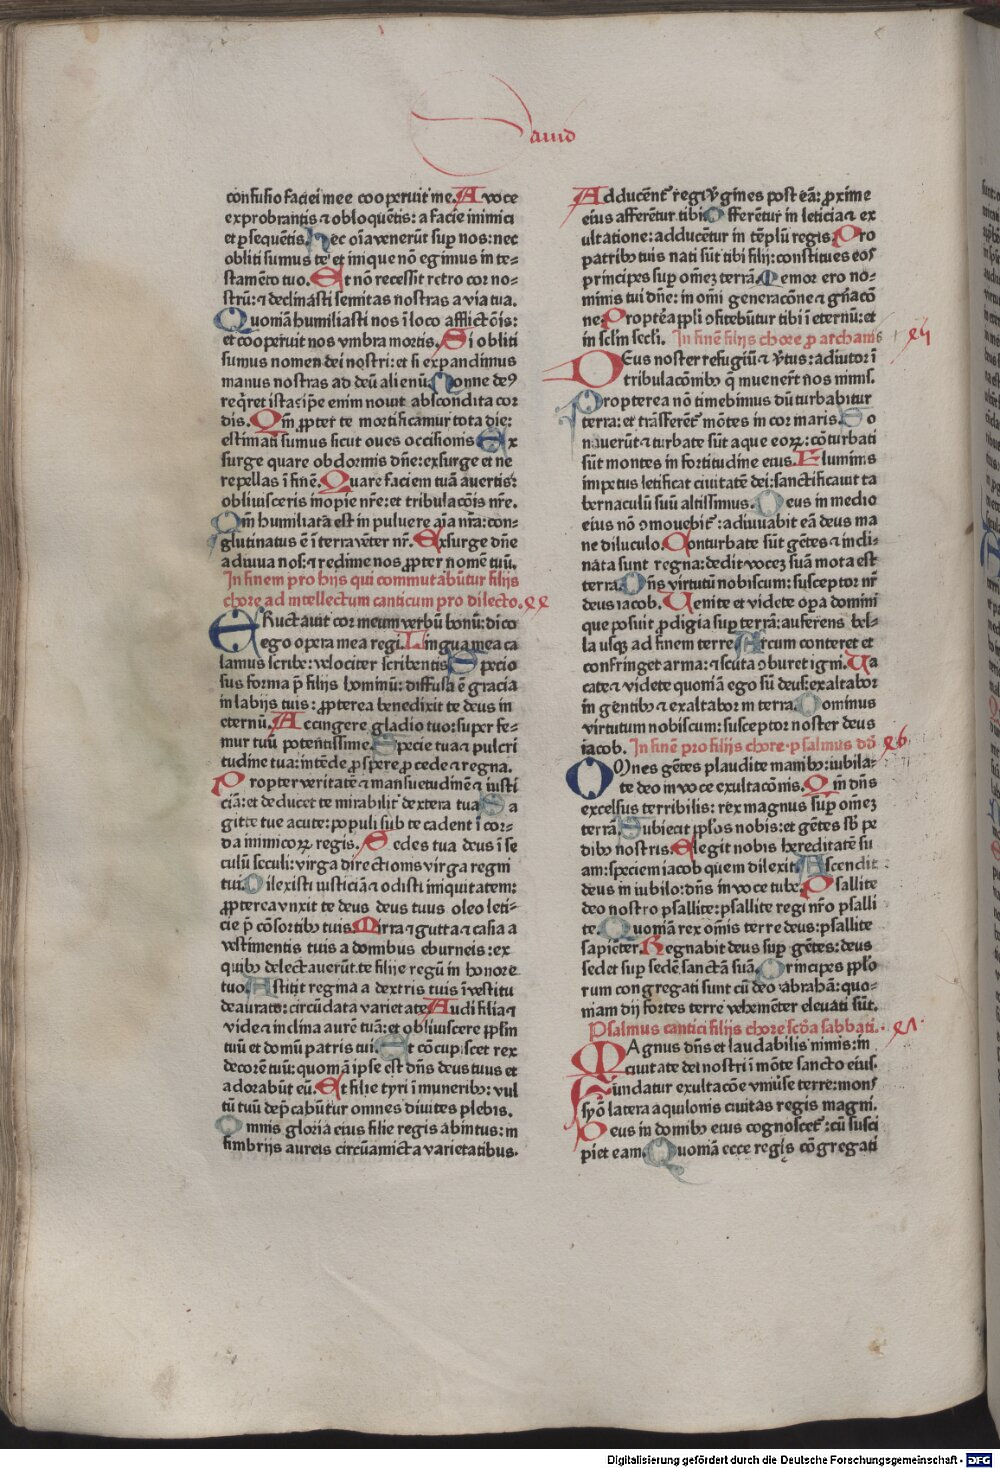 Dauid
confusio faciei mee cooperuit me. A voce
exprobrantis ⁊ obloquētis: a facie inimici
et ꝑsequētis. Hec oīa venerūt suꝑ nos: nec
obliti sumus te et inique nō egimus in te-
stamēto tuo. Et nō recessit retro cor no-
strū: ⁊ declinasti semitas nostras a via tua.
Quomā humiliasti nos ī loco afflictōis:
et cooperuit nos vmbra mortis. Si obliti
sumus nomen dei nostri: et si expandimus
manus nostras ad deū alienū. Nonne deꝰ
reqͥret ista: ip̄e enim nouit abscondita cor
dis. Qm̄ ꝓpter te mortificamur tota die:
estimati sumus sicut oues occisionis. Ex
surge quare obdormis dn̄e: exsurge et ne
repellas ī finē. Quare faciem tuā auertis:
obliuisceris inopie nr̄e: et tribulacōis nr̄e.
Qm̄ humiliata est in puluere aīa nr̄a: con-
glutinatus ē ī terra vēter nr̄. Exsurge dn̄e
adiuua nos: ⁊ redime nos ꝓpter nomē tuū.
In finem pro hijs qui commutabūtur filijs
chore ad intellectum canticum pro dilecto.
ERuctauit cor meum verbū bonū: dico
ego opera mea regi. Lingua mea ca
lamus scribe: velociter scribentis. Specio
sus forma p̄ filijs hominū: diffusa ē gracia
in labijs tuis: ꝓpterea benedixit te deus in
eternū. Accingere gladio tuo: super fe-
mur tuū potentissime. Specie tua ⁊ pulcri
tudine tua: intēde ꝓspere ꝓcede ⁊ regna.
Propter veritatē ⁊ mansuetudinē ⁊ iusti
ciā: et deducet te mirabilit᷑ dextera tua. Sa
gitte tue acute: populi sub te cadent ī cor-
da inimicoꝝ regis. Sedes tua deus ī se
culū seculi: virga directionis virga regni
tui. Dilexisti iusticiā ⁊ odisti iniquitatem:
ꝓpterea vnxit te deus deus tuus oleo leti-
cie p̄ cōsortibꝰ tuis. Mirra ⁊ gutta ⁊ casia a
vestimentis tuis a domibus eburneis: ex
quibꝰ delectauerūt te filie regū in honore
tuo. Astitit regina a dextris tuis ī vestitu
deaurato: circūdata varietate. Audi filia ⁊
vide ⁊ inclina aurē tuā: et obliuiscere ppl̄m
tuū et domū patris tui. Et cōcupiscet rex
decorē tuū: quomā ipse est dn̄s deus tuus et
adorabūt eū. Et filie tyri ī muneribꝰ: vul
tū tuū dep̄cabūtur omnes diuites plebis.
Omnis gloria eius filie regis abintus: in
fimbrijs aureis circūamicta varietatibus.
Adducent᷑ regi v̄gines post eā: ꝓxime
eius afferētur tibi. Offerētur in leticia ⁊ ex
ultatione: adducētur in tēplū regis. Pro
patribꝰ tuis nati sūt tibi filij: constitues eos
principes suꝑ om̄eꝫ terrā. Memor ero no-
minis tui dn̄e: in om̄i generacōne ⁊ gn̄acō
ne. Propt̄ea ppl̄i ↄfitebūtur tibi ī eternū: et
in sclm̄ secl̄i. In finē filijs chore ꝓ archanis
DEus noster refugiū ⁊ v̄tus: adiutor ī
tribulacōnibꝰ q̄ muenerūt nos nimis.
Propterea nō timebimus dū turbabitur
terra: et trāsferēt᷑ mōtes in cor maris. So
nauerūt ⁊ turbate sūt aque eoꝝ: cōturbati
sūt montes in fortitudine eius. Fluminis
impetus letificat ciuitatē dei: sanctificauit ta
bernaculū suū altissimus. Deus in medio
eius nō ↄmouebit᷑: adiuuabit eā deus ma
ne diluculo. Conturbate sūt gētes ⁊ incli-
nata sunt regna: dedit voceꝫ suā mota est
terra. Dn̄s virtutū nobiscum: susceptor nr̄
deus iacob. Uenite et videte oꝑa domini
que posuit ꝓdigia suꝑ terrā: auferens bel-
la usqꝫ ad finem terre. Arcum conteret et
confringet arma: ⁊ scuta ↄburet igni. Ua
cate ⁊ videte quoniā ego sū deus: exaltabor
in gentibꝰ ⁊ exaltabor in terra. Dominus
virtutum nobiscum: susceptor noster deus
iacob. In finē pro filijs chore psalmus dd̄
OMnes gētes plaudite manibꝰ: iubila-
te deo in voce exultacōnis. Qm̄ dn̄s
excelsus terribilis: rex magnus suꝑ om̄eꝫ
terrā. Subiecit ppl̄os nobis: et gētes sb̄ pe
dibꝰ nostris. Elegit nobis hereditatē su
am: speciem iacob quem dilexit. Ascendit
deus in iubilo: dn̄s in voce tube. Psallite
deo nostro psallite: psallite regi nr̄o psalli
te. Quomā rex om̄is terre deus: psallite
sapiēter. Regnabit deus suꝑ gētes: deus
sedet suꝑ sedē sanctā suā. Principes ppl̄o
rum congregati sunt cū deo abrahā: quo-
niam dij fortes terre vehemēter eleuati sūt.
Psalmus cantici filijs chore scd̄a sabbati.
MAgnus dn̄s et laudabilis nimis: in
ciuitate dei nostri ī mōte sancto eius.
Fundatur exultacōe vniuse terre: mons
syō latera aquilonis ciuitas regis magni.
Deus in domibꝰ eius cognoscet᷑: cū susci
piet eam. Quomā ecce reges cōgregati
Digitalisierung gefördert durch die Deutsche Forschungsgemeinschaft - DFG